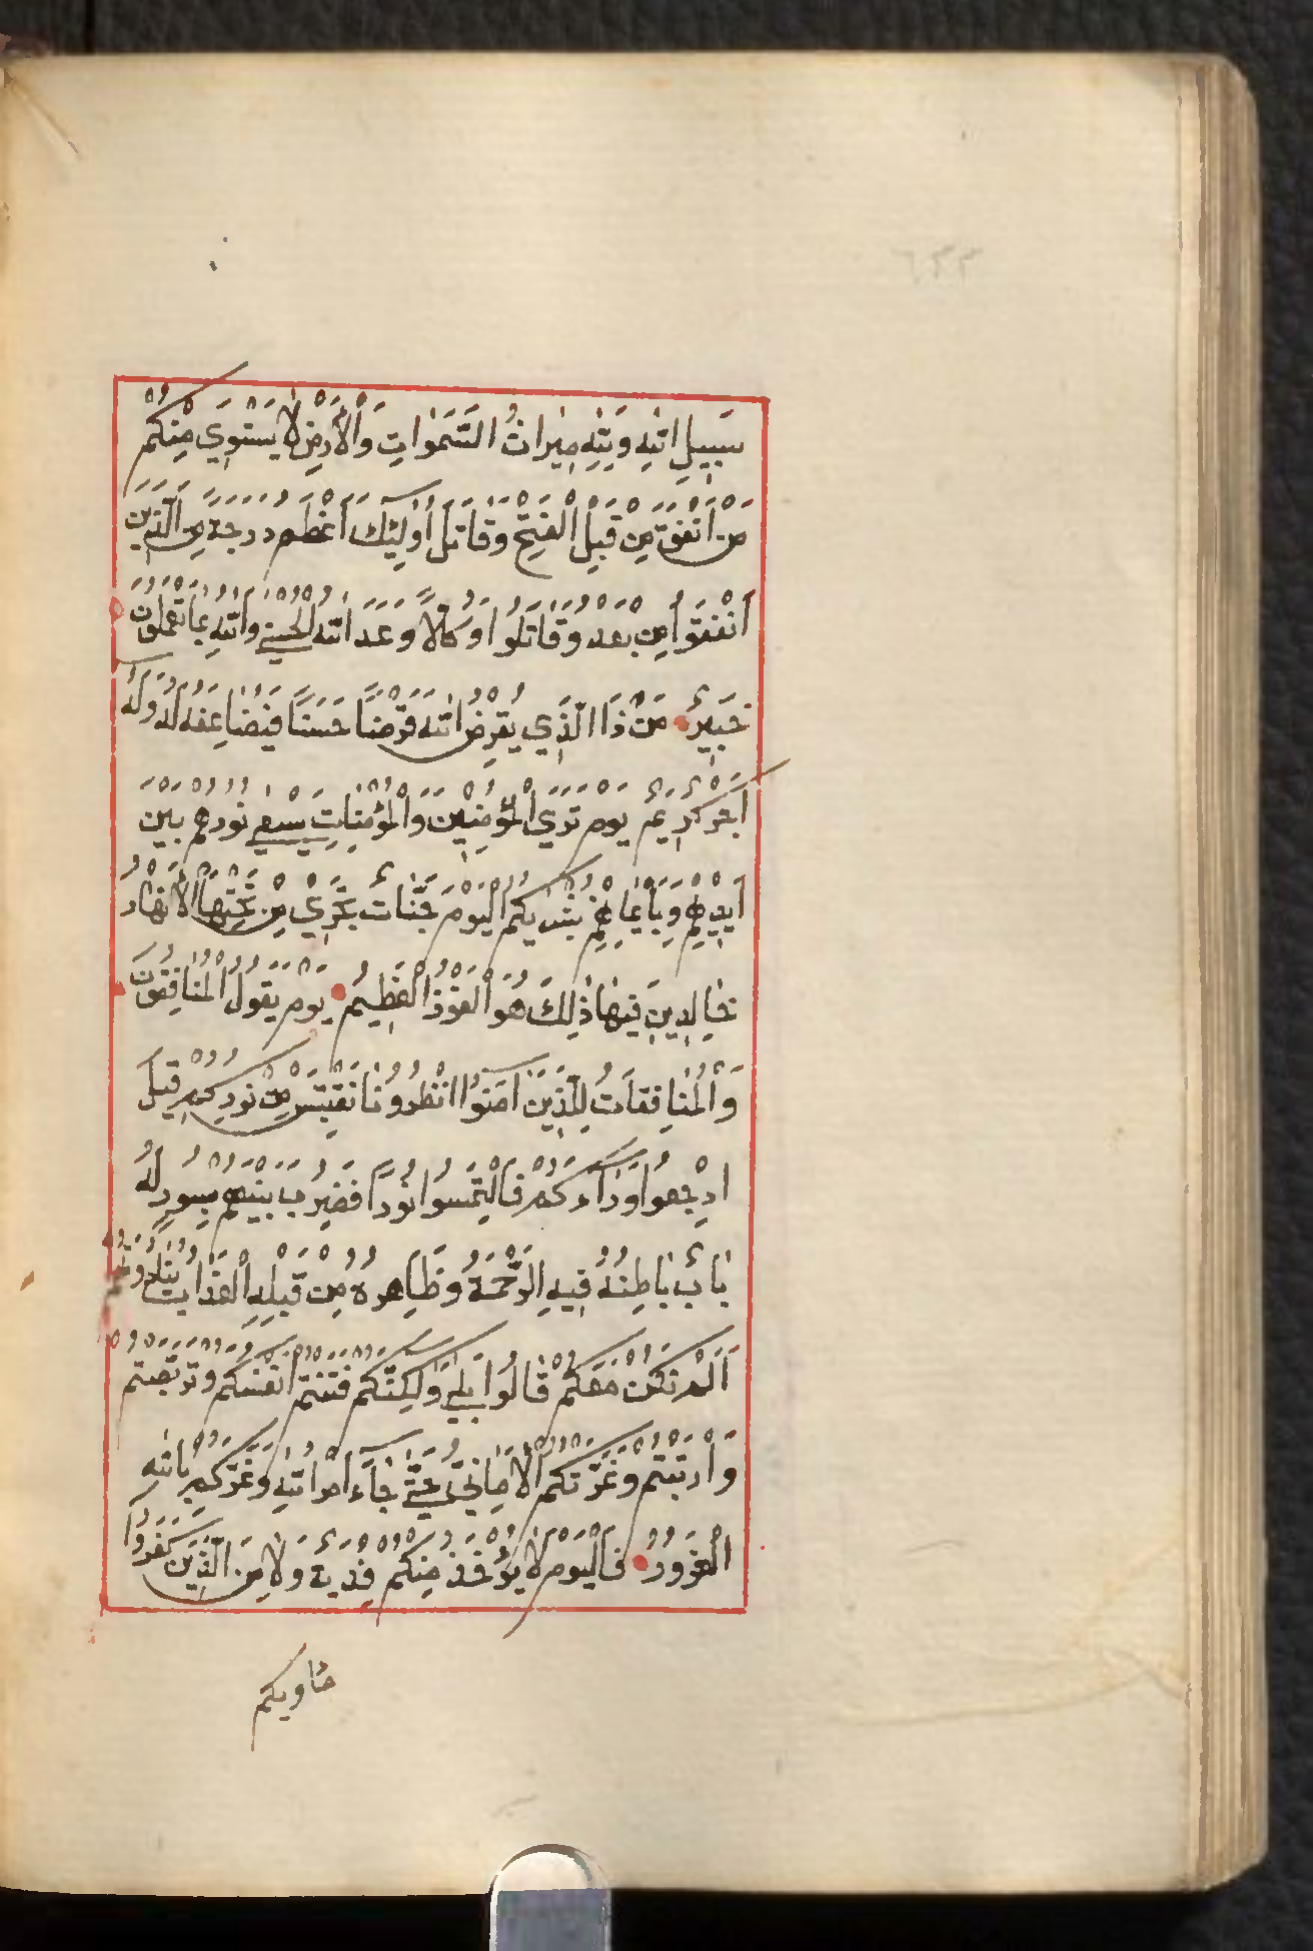 ٦٣٣
سَبِيلِ اللهِ وَلِلهِ مِيرَاثُ السَّمَوَاتِ وَالْأَرْضِ لَا يَسْتَوِي مِنْكُمْ
مَنْ أَنْفَقَ مِنْ قَبْلِ الْفَتْحِ وَقَاتَلَ أُولَئِكَ أَعْظَمُ دَرَجَةً مِنَ الَّذِينَ
أَنْفَقُوا مِنْ بَعْدُ وَقَاتَلُوا وَكُلًّا وَعَدَ اللهُ الْحُسْنَى وَاللهُ بِمَا تَعْمَلُونَ
خَبِيرٌ مَنْ ذَا الَّذِي يُقْرِضُ اللهَ قَرْضًا حَسَنًا فَيُضَاعِفَهُ لَهُ وَلَهُ
أَجْرٌ كَرِيمٌ يَوْمَ تَرَى الْمُؤْمِنِينَ وَالْمُؤْمِنَاتِ يَسْعَى نُورُهُمْ بَيْنَ
أَيْدِيهِمْ وَبِأَيْمَانِهِمْ بُشْرَيكُمُ الْيَوْمَ جَنَّاتٌ تَجْرِي مِنْ تَحْتِهَا الْأَنْهَارُ
خَالِدِينَ فِيهَا ذَلِكَ هُوَ الْفَوْزُ الْعَظِيمُ يَوْمَ يَقُولُ الْمُنَافِقُونَ
وَالْمُنَافِقَاتُ لِلَّذِينَ آمَنُوا انْظُرُونَا نَقْتَبِسْ مِنْ نُورِكُمْ قِيلَ
ارْجِعُوا وَرَاءَكُمْ فَالْتَمِسُوا نُورًا فَضُرِبَ بَيْنَهُمْ بِسُورٍ لَهُ
بَابٌ بَاطِنُهُ فِيهِ الرَّحْمَةُ وَظَاهِرُهُ مِنْ قِبَلِهِ الْعَذَابُ يُنَادُونَهُمْ
أَلَمْ نَكُنْ مَعَكُمْ قَالُوا بَلَى وَلَكِنَّكُمْ فَتَنْتُمْ أَنْفُسَكُمْ وَتَرَبَّصْتُمْ
وَارْتَبْتُمْ وَغَرَّتْكُمُ الْأَمَانِيُّ حَتَّى جَاءَ أَمْرُ اللهِ وَغَرَّكُمْ بِاللهِ
الْغَرُورُ فَالْيَوْمَ لَا يُؤْخَذُ مِنْكُمْ فِدْيَةٌ وَلَا مِنَ الَّذِينَ كَفَرُوا
مَاويكم